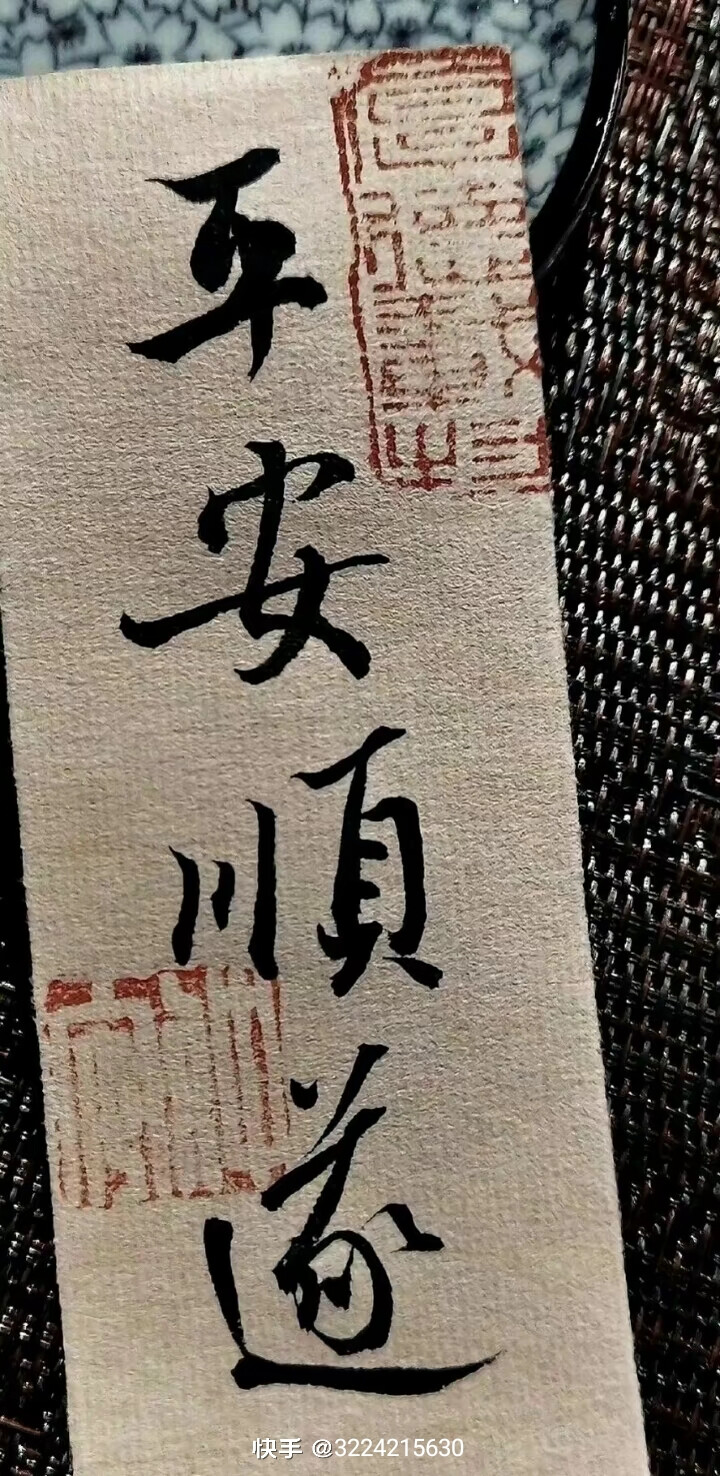 平安順遂
快手 @3224215630